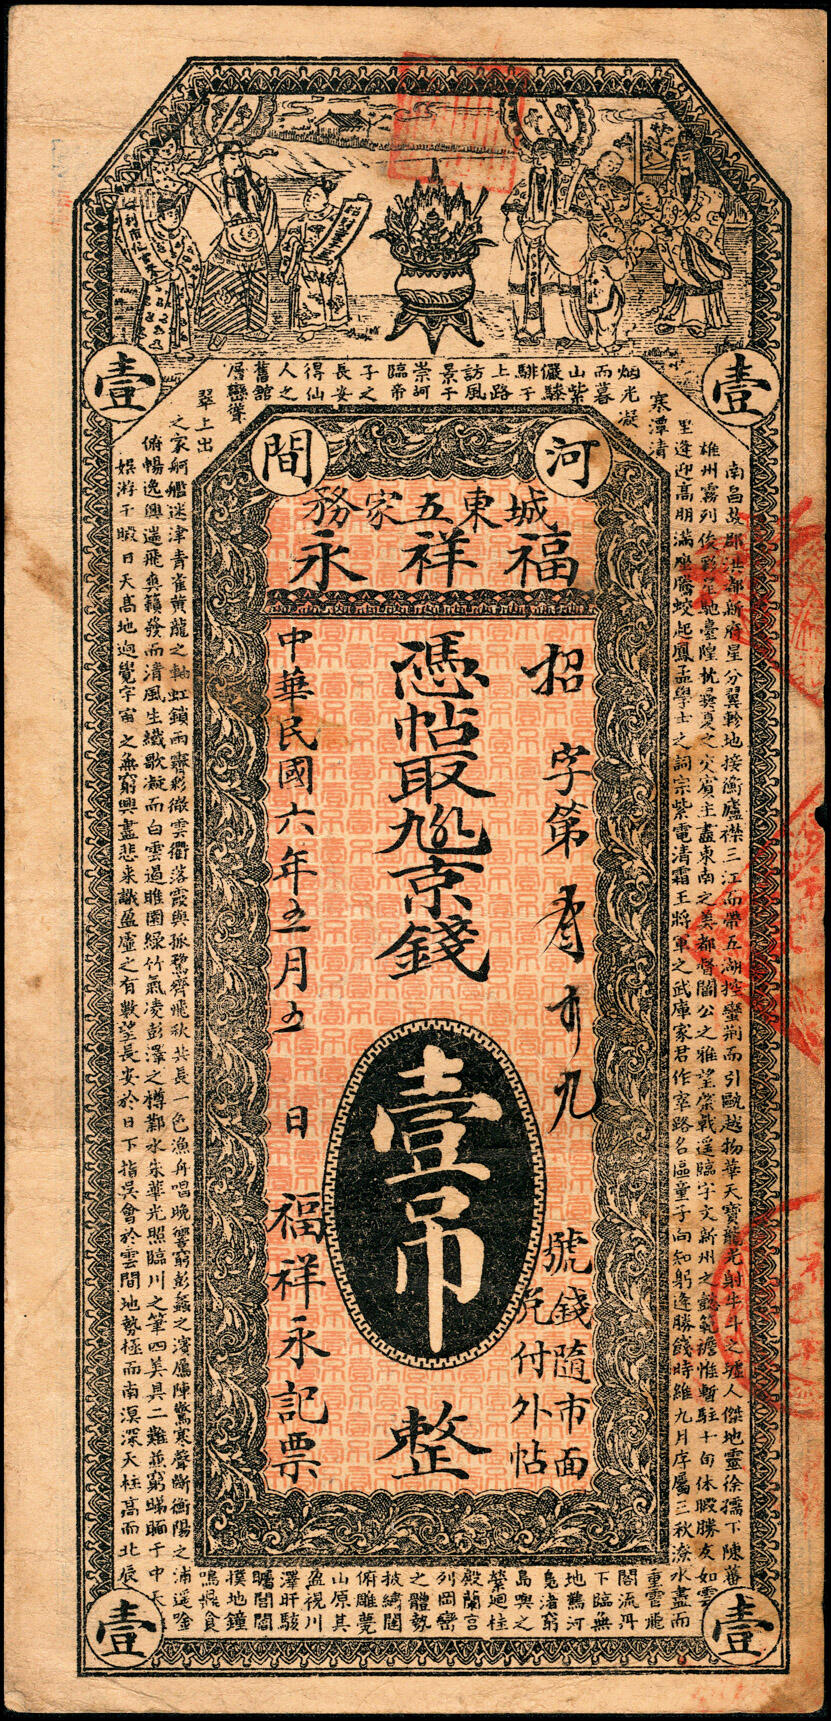 壹
壹
河間
城東五家務
福祥永
招字第
九
號錢隨市面
兌付外帖
憑帖取九八京錢
壹吊
整
中華民國六年五月五日
福祥永記票
南昌故郡洪都新府星分翼軫地接衡廬襟三江而帶五湖控蠻荊而引甌越物華天寶龍光射牛斗之墟人傑地靈徐孺下陳蕃
雄州霧列俊彩星馳臺隍枕夷夏之交賓主盡東南之美都督閻公之雅望棨戟遙臨宇文新州之懿範襜帷暫駐十旬休暇勝友如雲
里逢迎高朋滿座騰蛟起鳳孟學士之詞宗紫電清霜王將軍之武庫家君作宰路名區童子何知躬逢勝餞時維九月序屬三秋潦水盡而
寒潭清
烟光凝
而暮
山紫
儼驂
騑于
上路
訪風
景于
崇阿
臨帝
子之
長安
得仙
人之
舊館
層巒聳
翠上出
重霄飛
閣流丹
下臨無
地鶴汀
鳧渚窮
島嶼之
縈迴桂
殿蘭宮
列岡巒
之體勢
披繡闥
俯雕甍
山原其
盈視川
澤盱駭
矚閭閻
撲地鐘
鳴鼎食
之家舸艦迷津青雀黃龍之軸虹銷雨霽彩徹雲衢落霞與孤鶩齊飛秋共長一色漁舟唱晚響窮彭蠡之濱雁陣驚寒聲斷衡陽之浦遙吟
俯暢逸興遄飛爽籟發而清風生纖歌凝而白雲遏睢園綠竹氣凌彭澤之樽鄴水朱華光照臨川之筆四美具二難並窮睇眄于中天
娛游于暇日天高地迥覺宇宙之無窮興盡悲來識盈虛之有數望長安於日下指吳會於雲間地勢極而南溟深天柱高而北辰
壹
壹